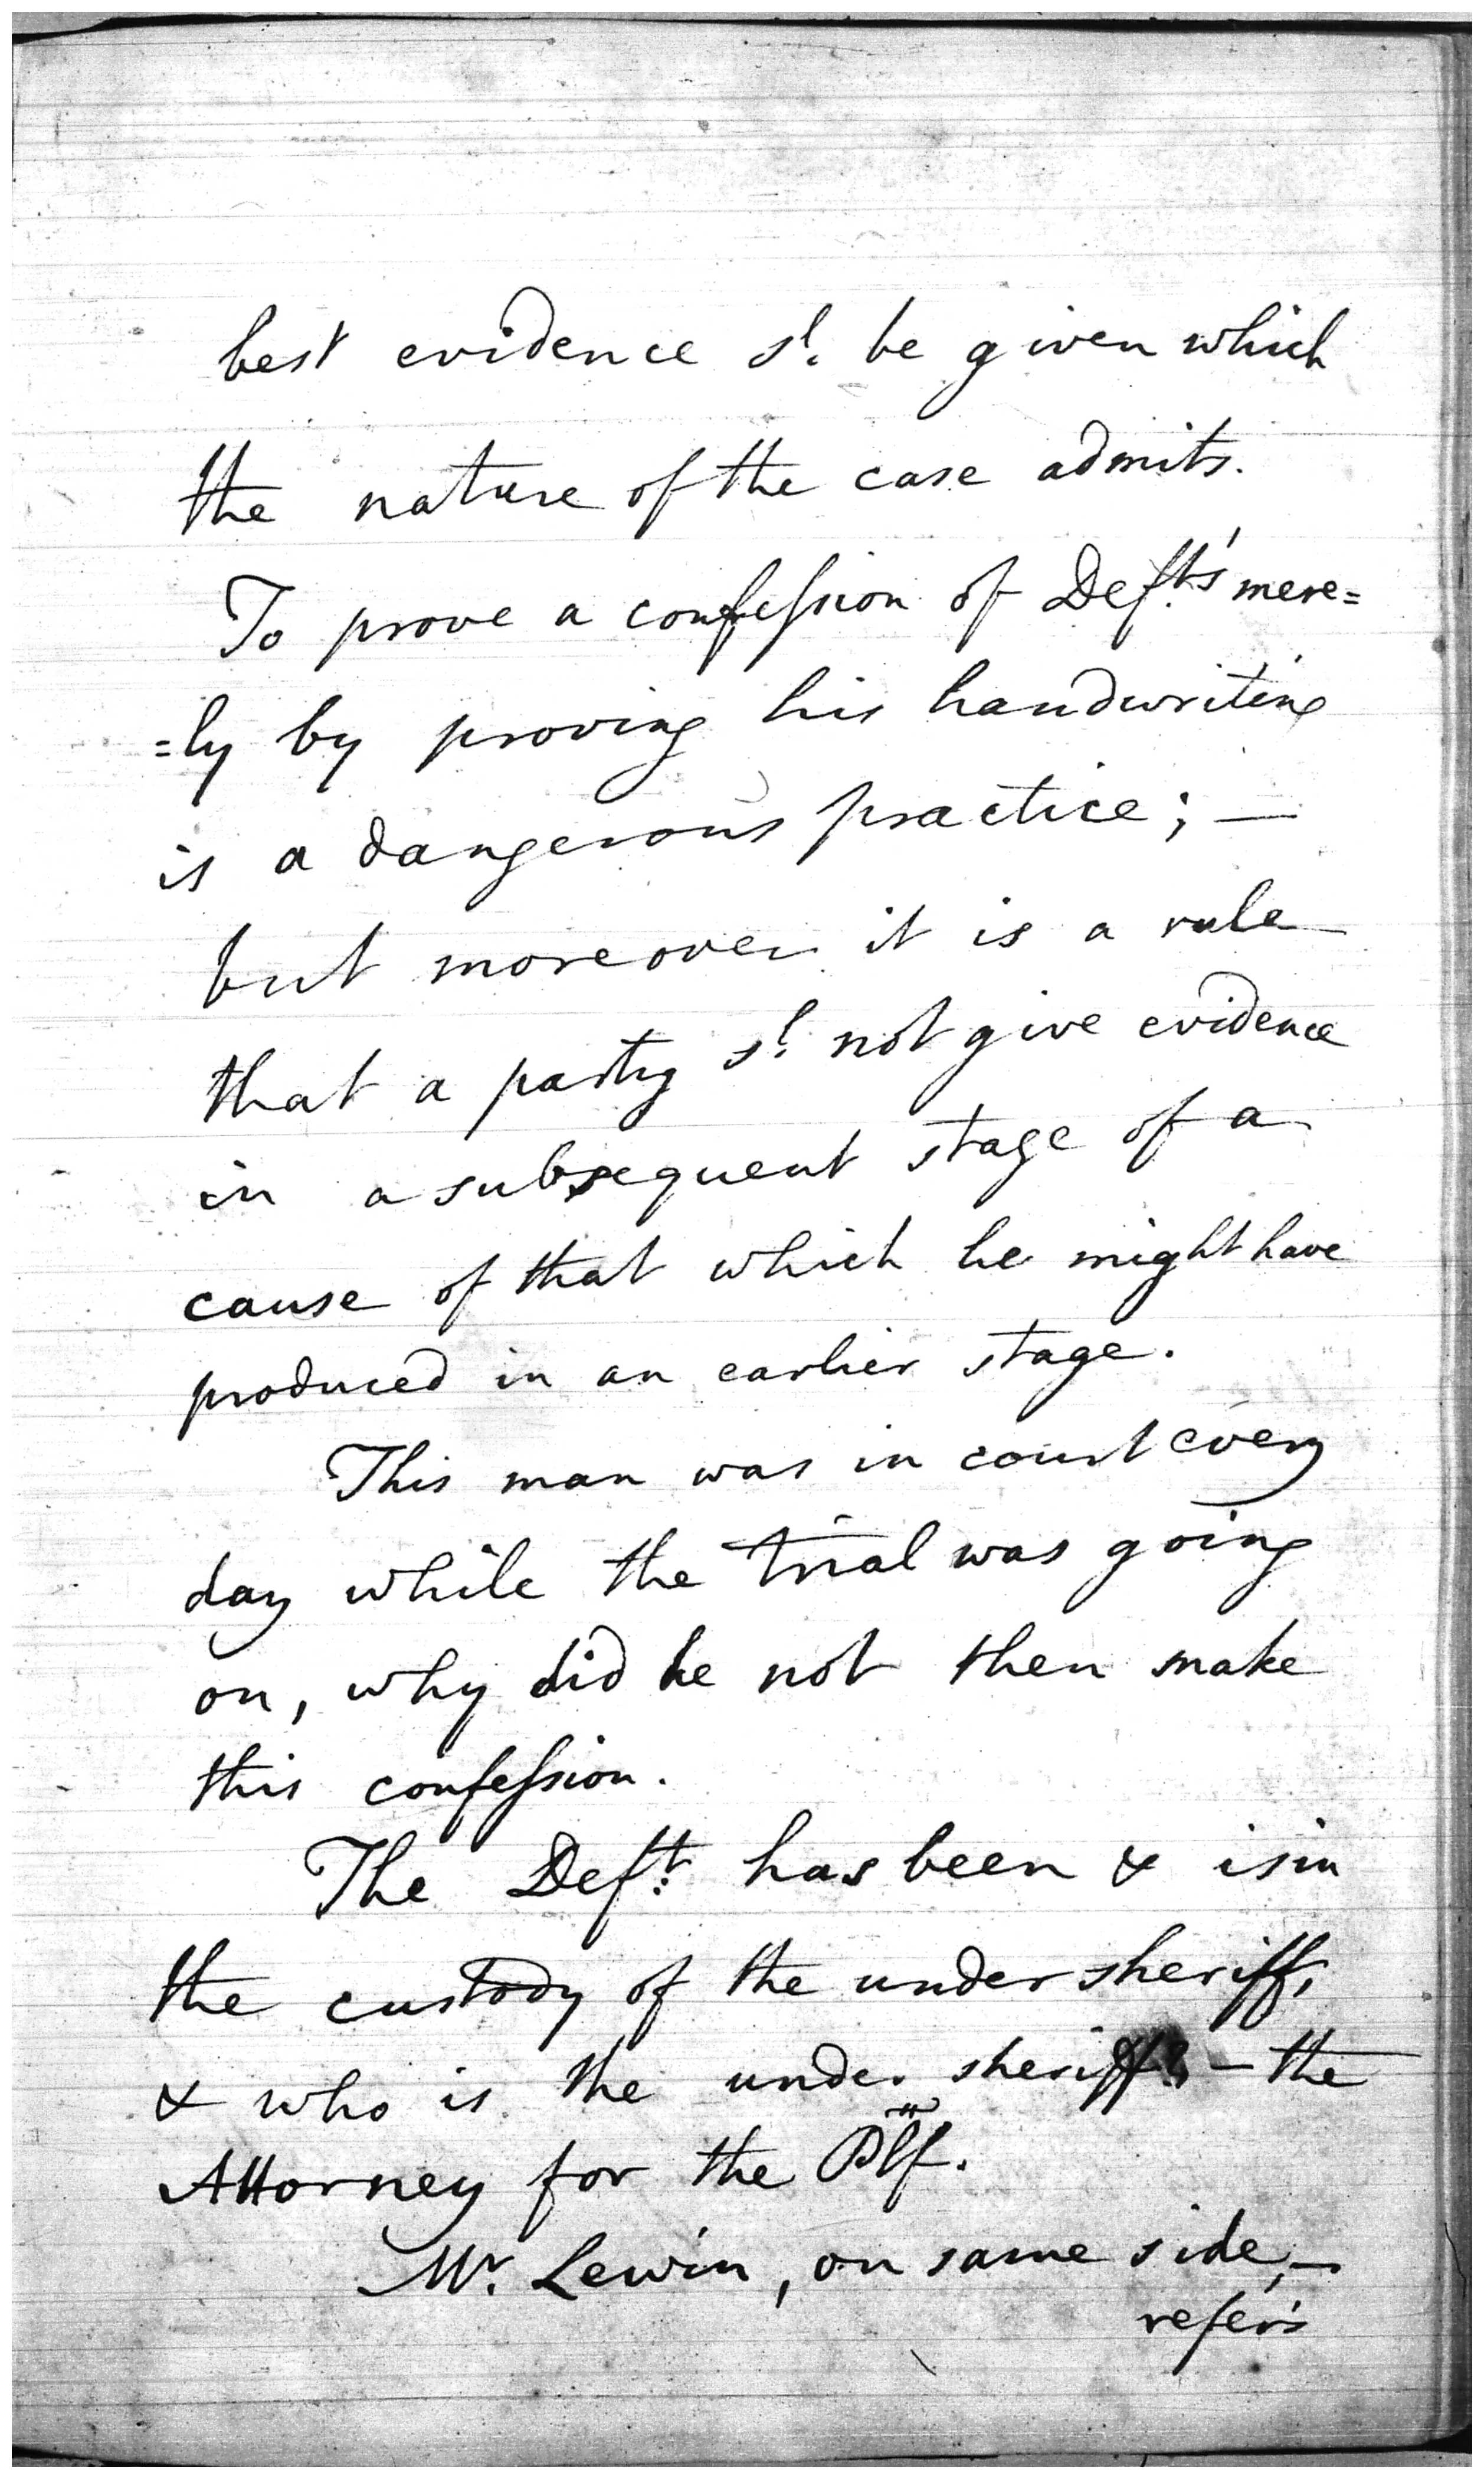 best evidence sd. be given which
the nature of the case admits.
To prove a confeſsion of Deft.s' mere=
=ly by proving his handwriting
is a dangerous practice; —
but moreover it is a rule
that a party sd. not give evidence
in a subsequent stage of a
cause of that which he might have
produced in an earlier stage.
This man was in court every
day while the trial was going
on, why did he not then make
this confeſsion.
The Deft. has been & is in
the custody of the undersheriff,
& who is the under sheriff? — the
Attorney for the Plf.
Mr. Lewin, on same side, —
refers